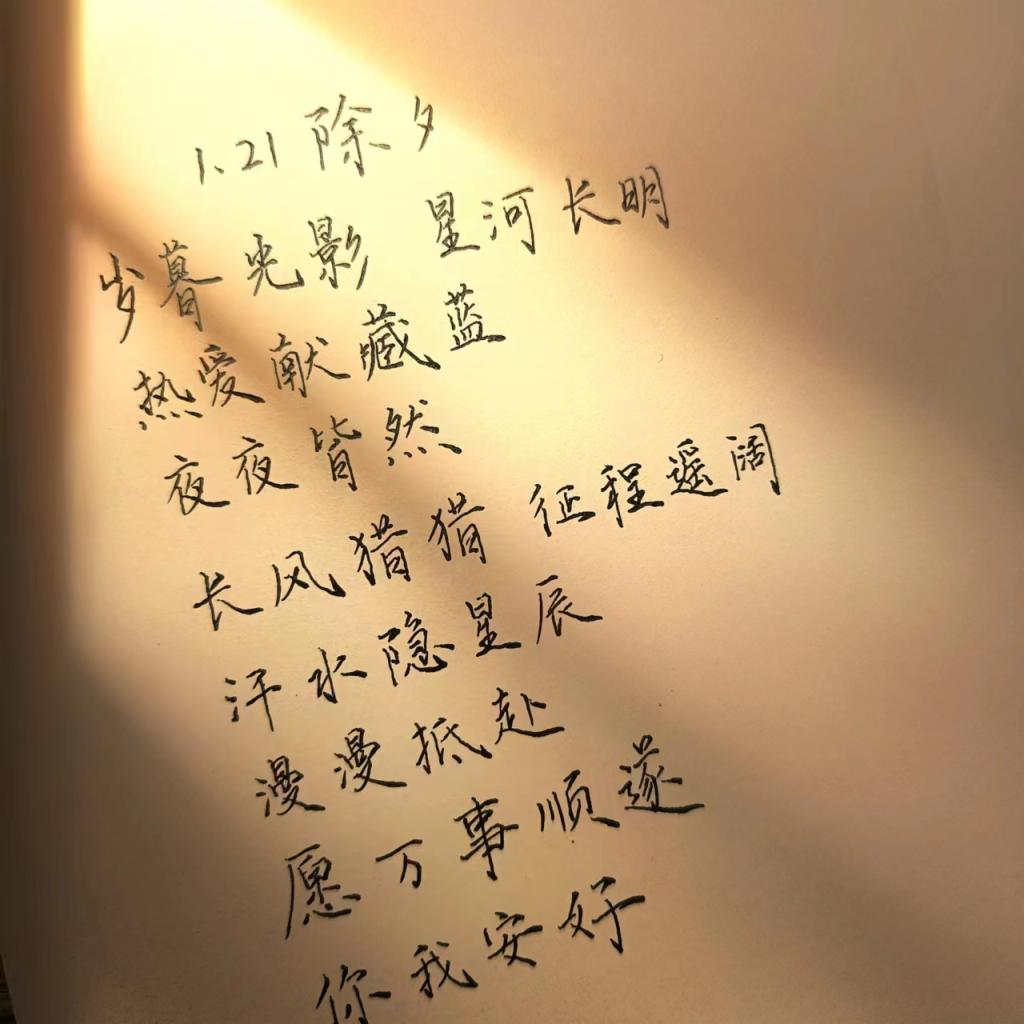 1.21 除夕
岁暮光影 星河长明
热爱献藏蓝
夜夜皆然
长风猎猎 征程遥阔
汗水隐星辰
漫漫抵赴
愿万事顺遂
你我安好